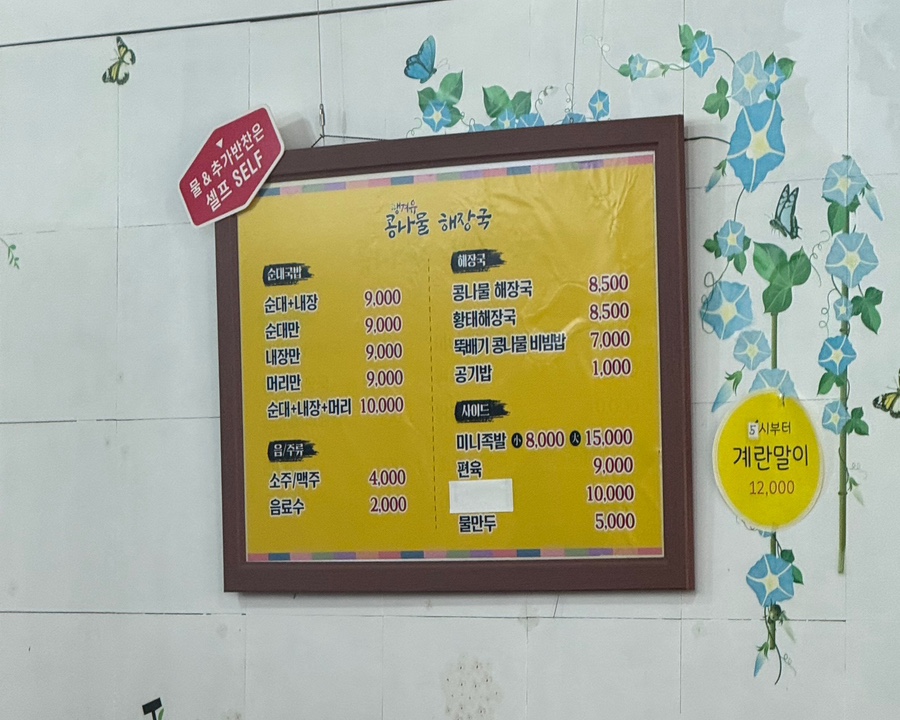 물 & 추가반찬은
셀프 SELF
콩나물 해장국
순대국밥
순대+내장 9,000
순대만 9,000
내장만 9,000
머리만 9,000
순대+내장+머리 10,000
음/주류
소주/맥주 4,000
음료수 2,000
해장국
콩나물 해장국 8,500
황태해장국 8,500
뚝배기 콩나물 비빔밥 7,000
공기밥 1,000
사이드
미니족발 小 8,000 大 15,000
편육 9,000
10,000
물만두 5,000
5시부터
계란말이
12,000